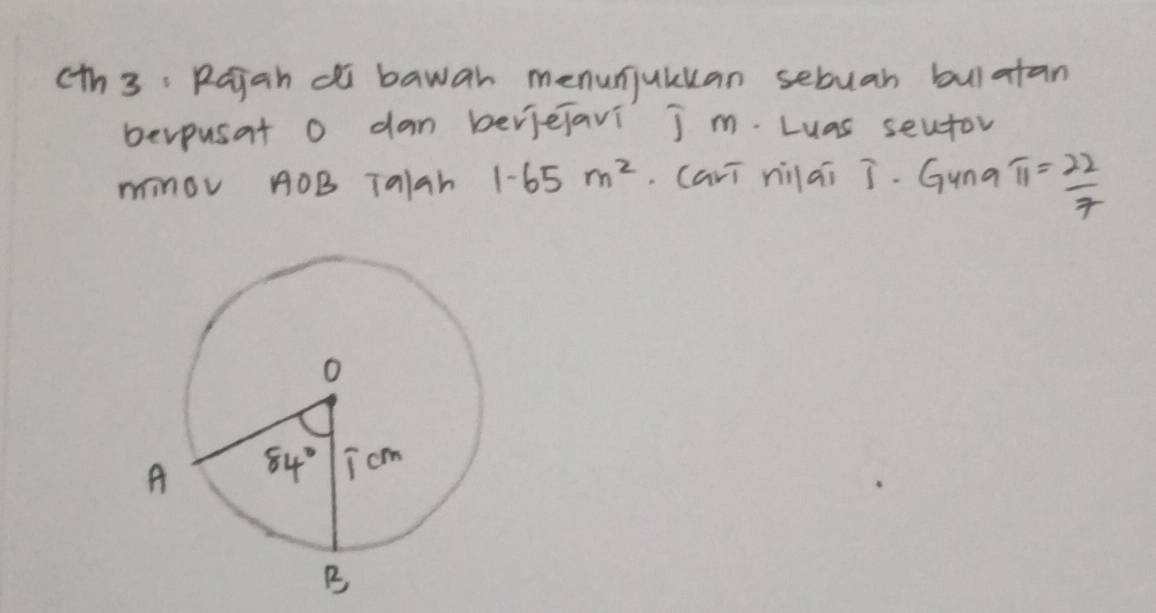 Cth 3 : Rajah di bawah menunjukkan sebuah bulatan
berpusat O dan berjejari j m. Luas sektor
minor AOB ialah 1.65 m². Cari nilai j. Guna π = 22/7
O
84° j cm
A
B